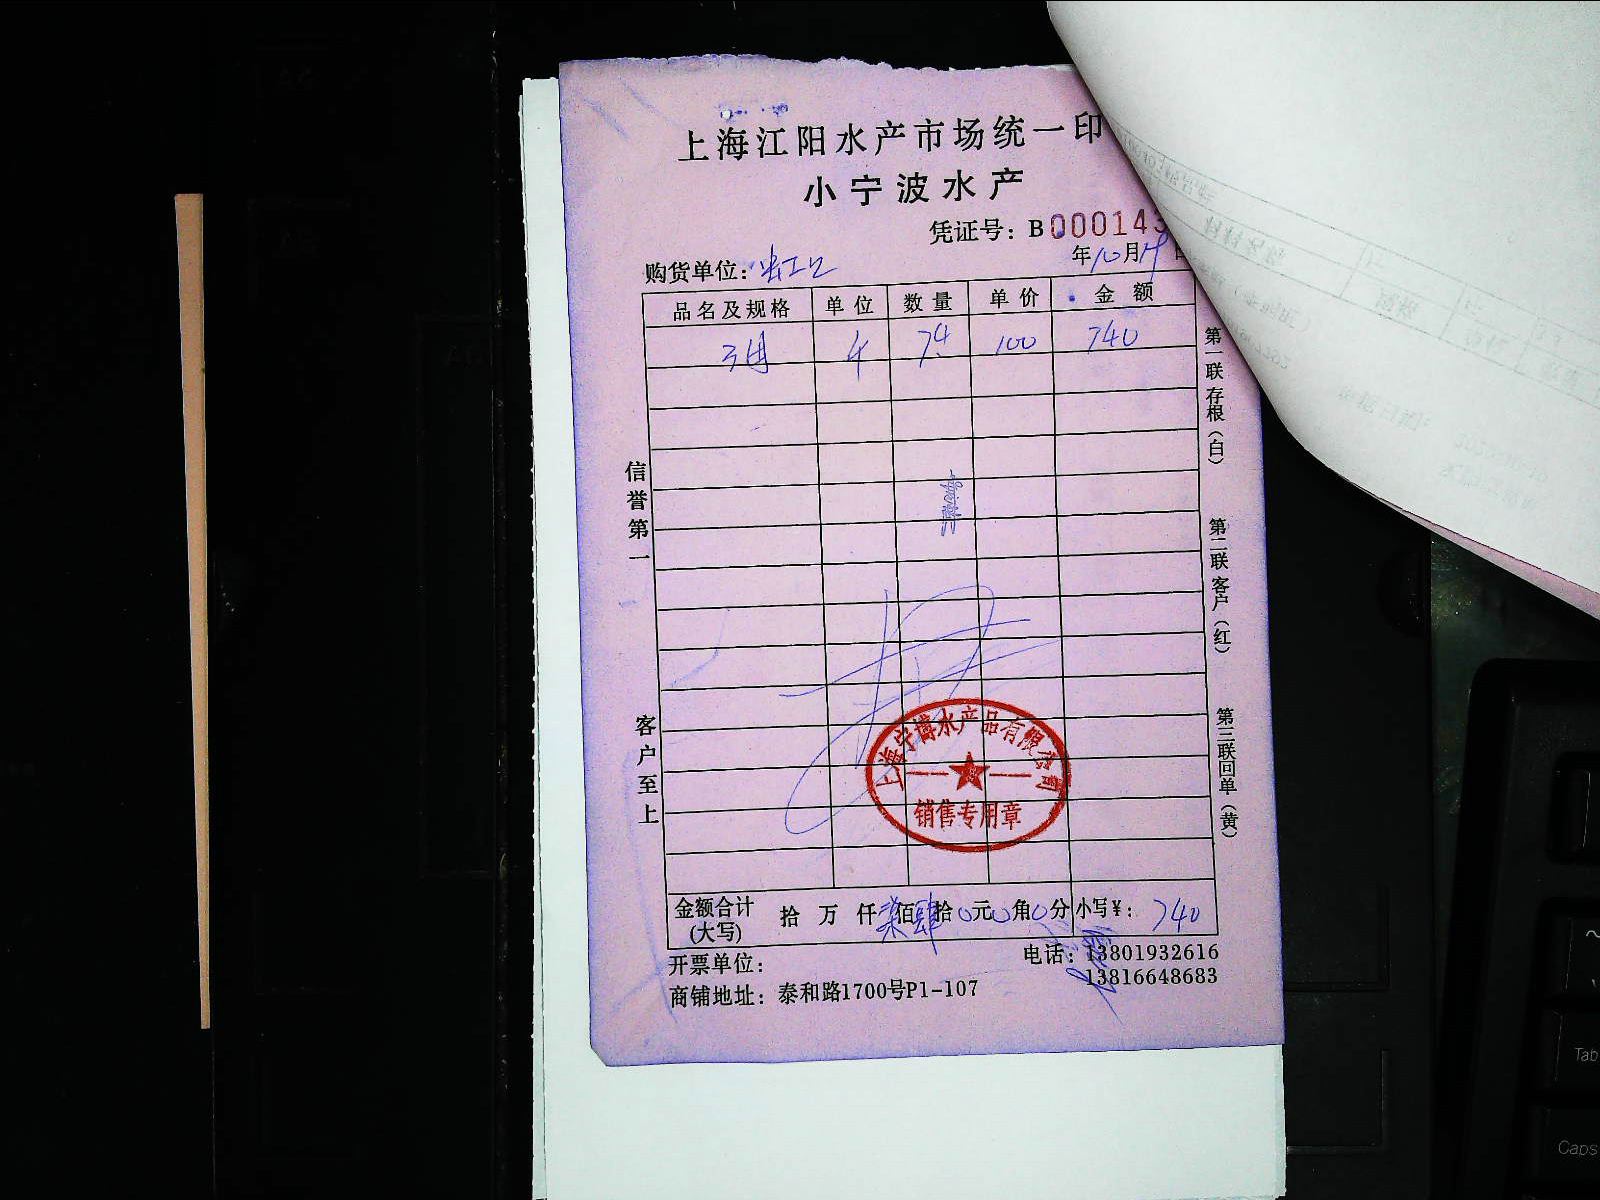 上海江阳水产市场统一印
小宁波水产
凭证号: B000143
年10月19日
购货单位:
品名及规格 单位 数量 单价 金额
斤 7.4 100 740
第一联 存根(白)
第二联 客户(红)
第三联 回单(黄)
信誉第一
客户至上
上海宁博水产品有限公司
销售专用章
金额合计(大写) 拾 万 仟柒佰肆拾0元0角0分 小写¥: 740
开票单位:
电话: 13801932616
13816648683
商铺地址: 泰和路1700号P1-107
Tab
Caps